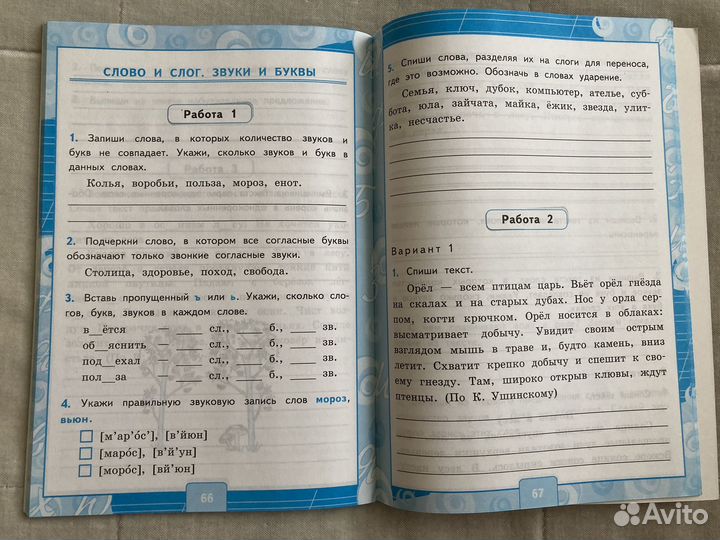 СЛОВО И СЛОГ. ЗВУКИ И БУКВЫ
Работа 1
1. Запиши слова, в которых количество звуков и
букв не совпадает. Укажи, сколько звуков и букв в
данных словах.
Колья, воробьи, польза, мороз, енот.
2. Подчеркни слово, в котором все согласные буквы
обозначают только звонкие согласные звуки.
Столица, здоровье, поход, свобода.
3. Вставь пропущенный ъ или ь. Укажи, сколько сло-
гов, букв, звуков в каждом слове.
в__ётся — ____ сл., ____ б., ____ зв.
об__яснить — ____ сл., ____ б., ____ зв.
под__ехал — ____ сл., ____ б., ____ зв.
пол__за — ____ сл., ____ б., ____ зв.
4. Укажи правильную звуковую запись слов мороз,
вьюн.
[м'ар'о́с'], [в'йюн]
[маро́с], [в'й'ун]
[моро́с], [вй'юн]
66
5. Спиши слова, разделяя их на слоги для переноса,
где это возможно. Обозначь в словах ударение.
Семья, ключ, дубок, компьютер, ателье, суб-
бота, юла, зайчата, майка, ёжик, звезда, улит-
ка, несчастье.
Работа 2
Вариант 1
1. Спиши текст.
Орёл — всем птицам царь. Вьёт орёл гнёзда
на скалах и на старых дубах. Нос у орла сер-
пом, когти крючком. Орёл носится в облаках:
высматривает добычу. Увидит своим острым
взглядом мышь в траве и, будто камень, вниз
летит. Схватит крепко добычу и спешит к сво-
ему гнезду. Там, широко открыв клювы, ждут
птенцы. (По К. Ушинскому)
67
Avito